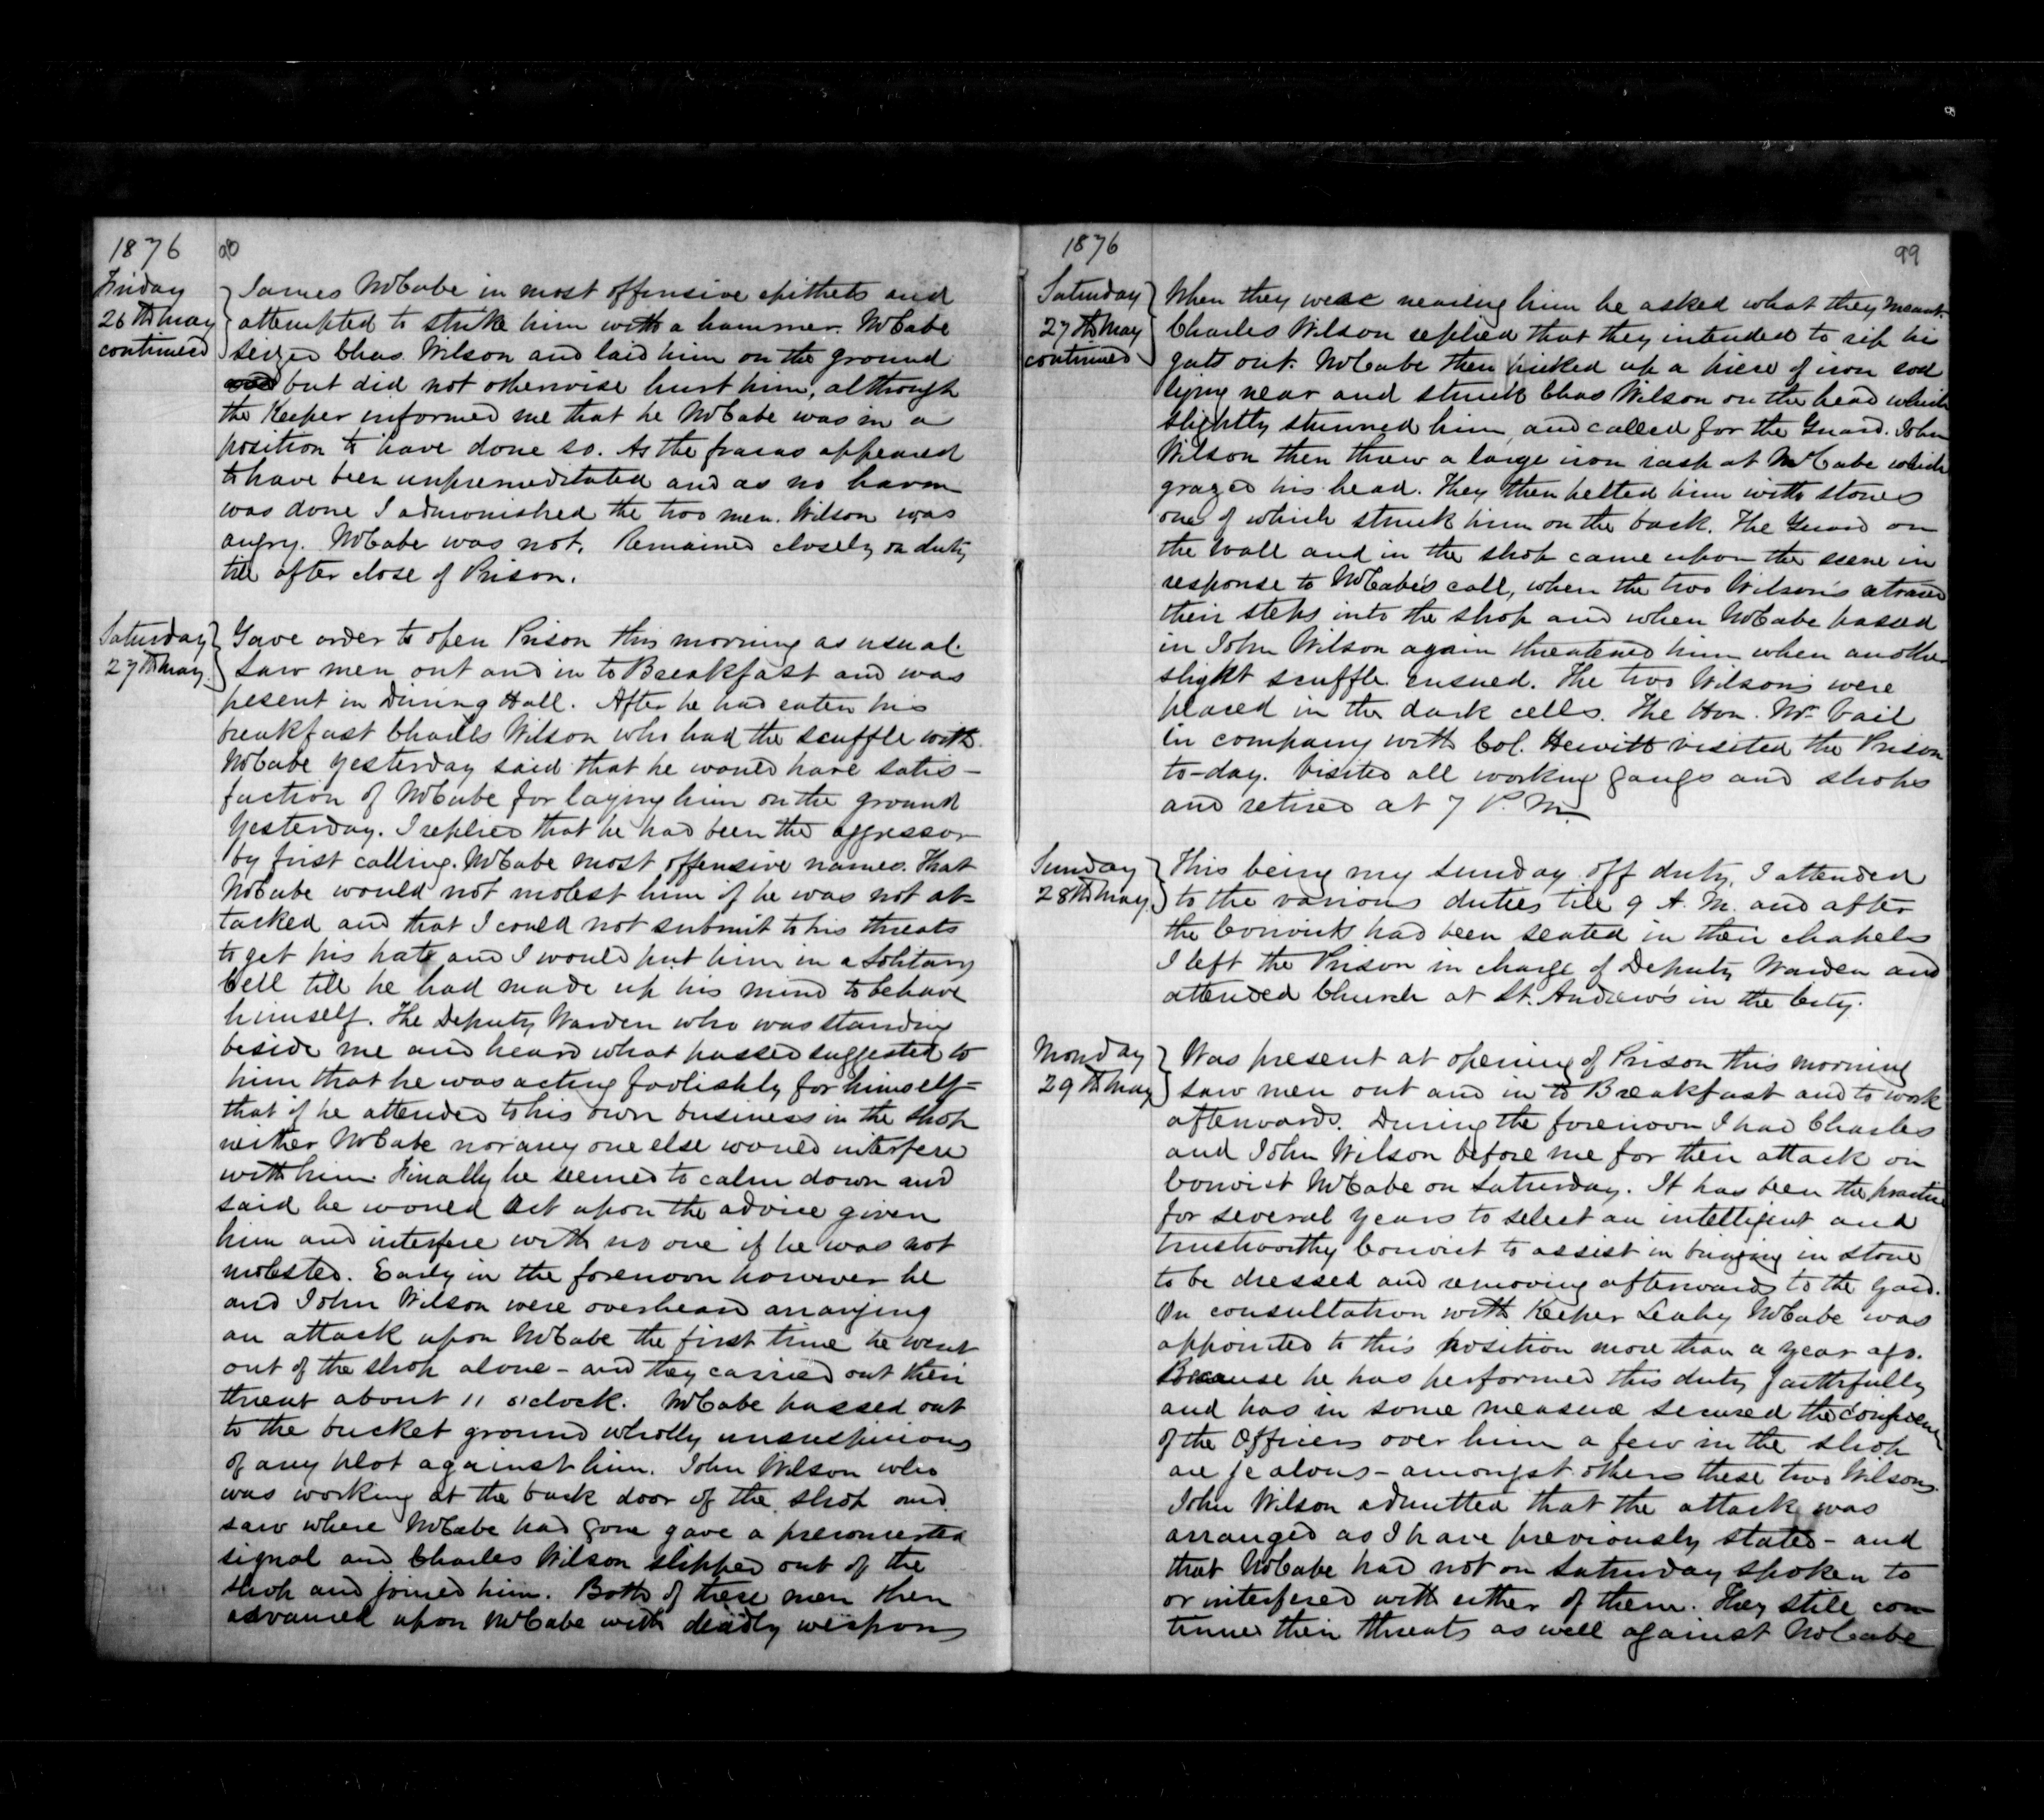 1876
98
Friday
26th May
continued
James McCabe in most offensive epithets and
attempted to strike him with a hammer. McCabe
seized Chas. Wilson and laid him on the ground
but did not otherwise hurt him, although
the Keeper informed me that he McCabe was in a
position to have done so. As the fracas appeared
to have been unpremeditated and as no harm
was done I admonished the two men. Wilson was
angry. McCabe was not. Remained closely on duty
till after close of Prison.
Saturday
27th May.
Gave order to open Prison this morning as usual.
Saw men out and in to Breakfast and was
present in Dining Hall. After he had eaten his
breakfast Charles Wilson who had the scuffle with
McCabe yesterday said that he would have satis-
faction of McCabe for laying him on the ground
yesterday. I replied that he had been the aggressor
by first calling McCabe most offensive names. That
McCabe would not molest him if he was not at-
tacked and that I could not submit to his threats
to get his hate and I would put him in a Solitary
Cell till he had made up his mind to behave
himself. The Deputy Warden who was standing
beside me and heard what passed suggested to
him that he was acting foolishly for himself-
that if he attended to his own business in the shop
neither McCabe nor any one else would interfere
with him. Finally he seemed to calm down and
said he would act upon the advice given
him and interfere with no one if he was not
molested. Early in the forenoon however he
and John Wilson were overheard arranging
an attack upon McCabe the first time he went
out of the shop alone - and they carried out their
threat about 11 o'clock. McCabe passed out
to the bucket ground wholly unsuspicious
of any plot against him. John Wilson who
was working at the back door of the shop and
saw where McCabe had gone gave a preconcerted
signal and Charles Wilson slipped out of the
shop and joined him. Both of these men then
advanced upon McCabe with deadly weapons
1876
99
Saturday
27th May
continued
When they were nearing him he asked what they meant.
Charles Wilson replied that they intended to rip his
guts out. McCabe then picked up a piece of iron rod
lying near and struck Chas Wilson on the head which
slightly stunned him, and called for the Guard. John
Wilson then threw a large iron rasp at McCabe which
grazed his head. They then pelted him with stones
one of which struck him on the back. The Guard on
the wall and in the shop came upon the scene in
response to McCabe's call, when the two Wilson's retraced
their steps into the shop and when McCabe passed
in John Wilson again threatened him when another
slight scuffle ensued. The two Wilson's were
placed in the dark cells. The Hon. Mr. Vail
in company with Col. Hewitt visited the Prison
to-day. Visited all working gangs and shops
and retired at 7 P.M.
Sunday
28th May.
This being my Sunday off duty, I attended
to the various duties till 9 A.M. and after
the Convicts had been seated in their chapels
I left the Prison in charge of Deputy Warden and
attended Church at St. Andrew's in the City.
Monday
29th May
Was present at opening of Prison this morning
saw men out and in to Breakfast and to work
afterwards. During the forenoon I had Charles
and John Wilson before me for their attack on
Convict McCabe on Saturday. It has been the practice
for several years to select an intelligent and
trustworthy Convict to assist in bringing in stone
to be dressed and removing afterwards to the yard.
On consultation with Keeper Leahy McCabe was
appointed to this position more than a year ago.
Because he has performed this duty faithfully
and has in some measure secured the confidence
of the Officers over him a few in the shop
are jealous - amongst others these two Wilsons.
John Wilson admitted that the attack was
arranged as I have previously stated - and
that McCabe had not on Saturday spoken to
or interfered with either of them. They still con-
tinue their threats as well against McCabe